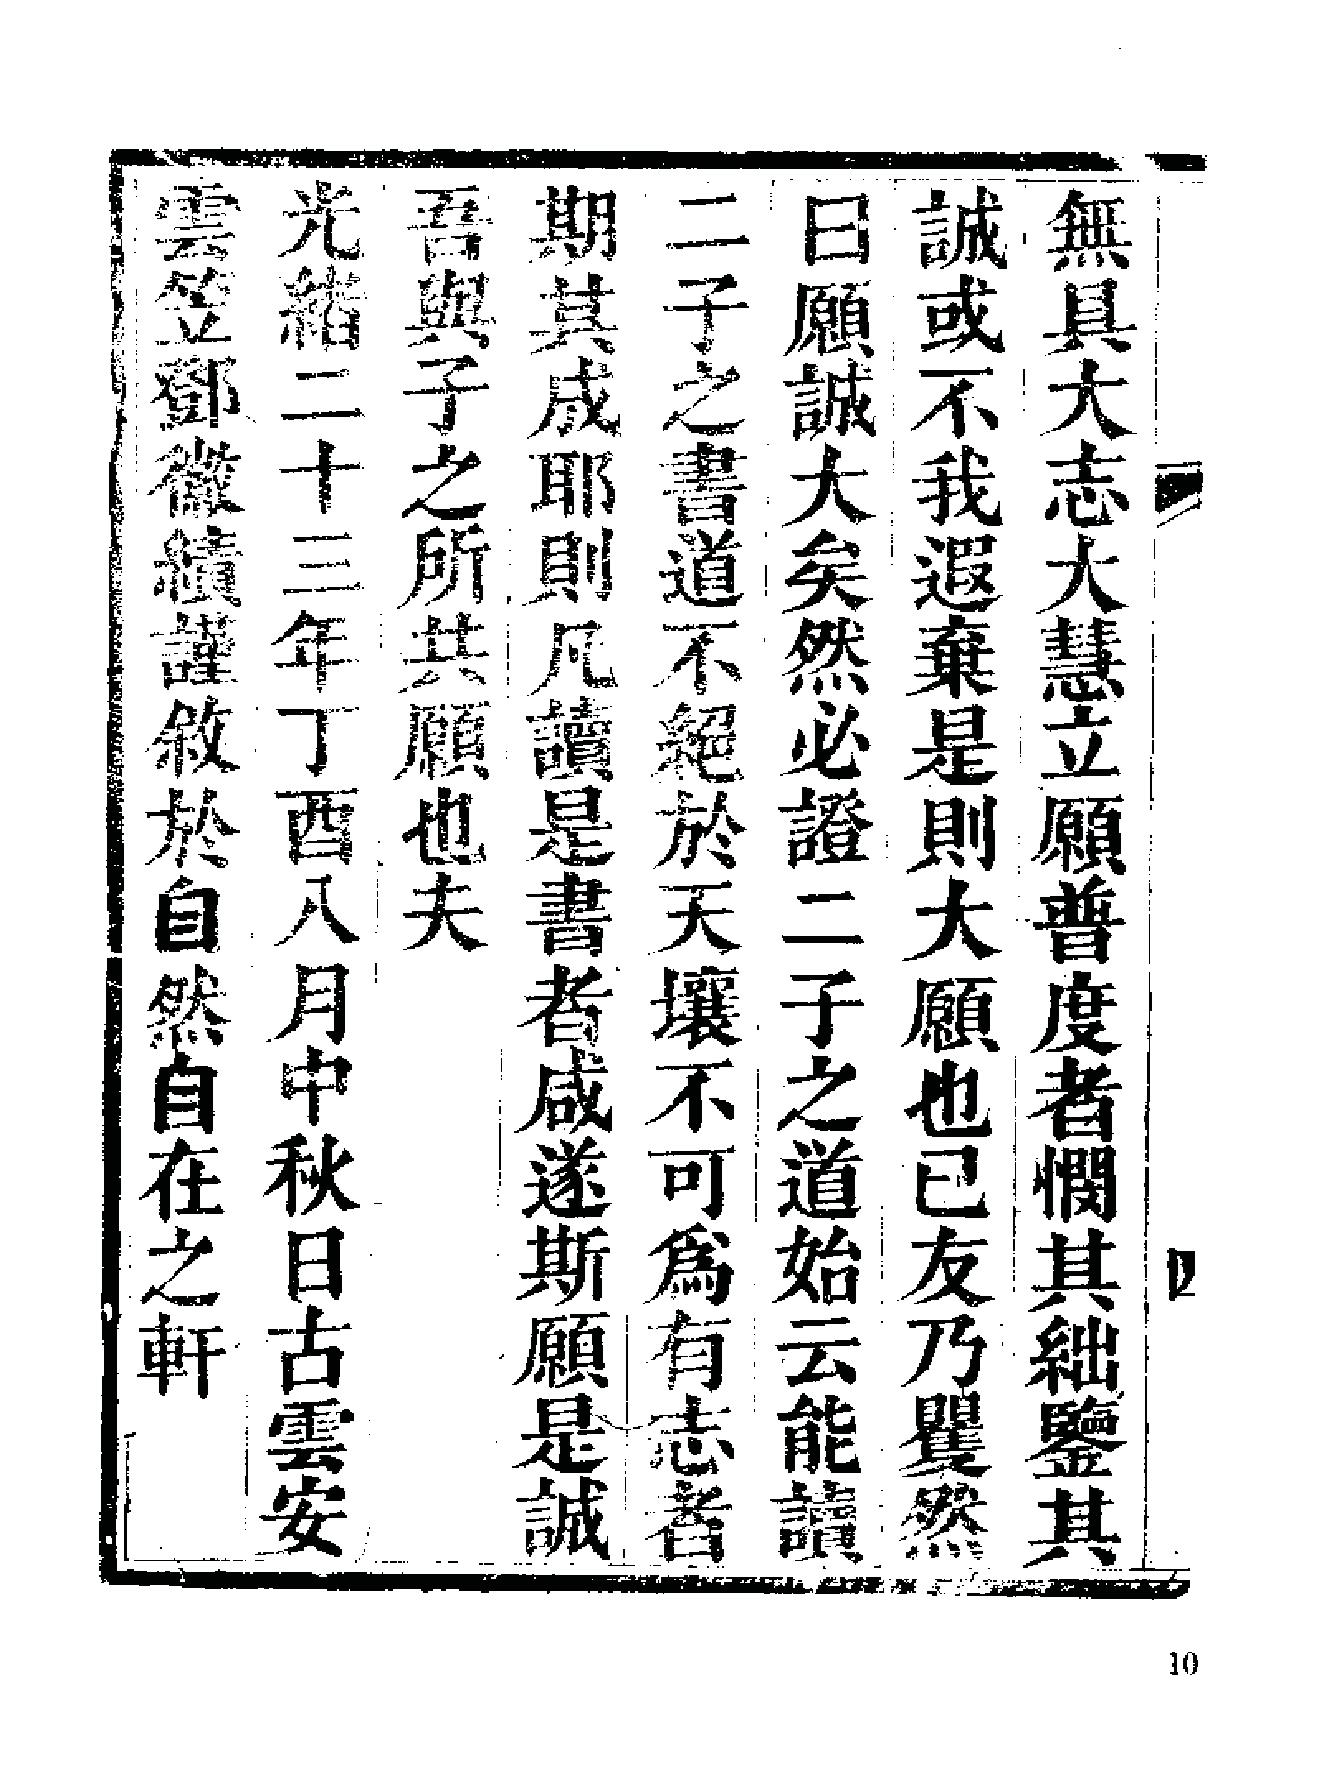 無具大志大慧立願普度者憫其絀鑒其
誠或不我遐棄是則大願也已友乃瞿然
曰願誠大矣然必證二子之道始云能讀
二子之書道不絕於天壤不可爲有志者
期其成耶則凡讀是書者咸遂斯願是誠
吾與子之所共願也夫
光緒二十三年丁酉八月中秋日古雲安
雲笠鄧徽績謹敘於自然自在之軒
四
10